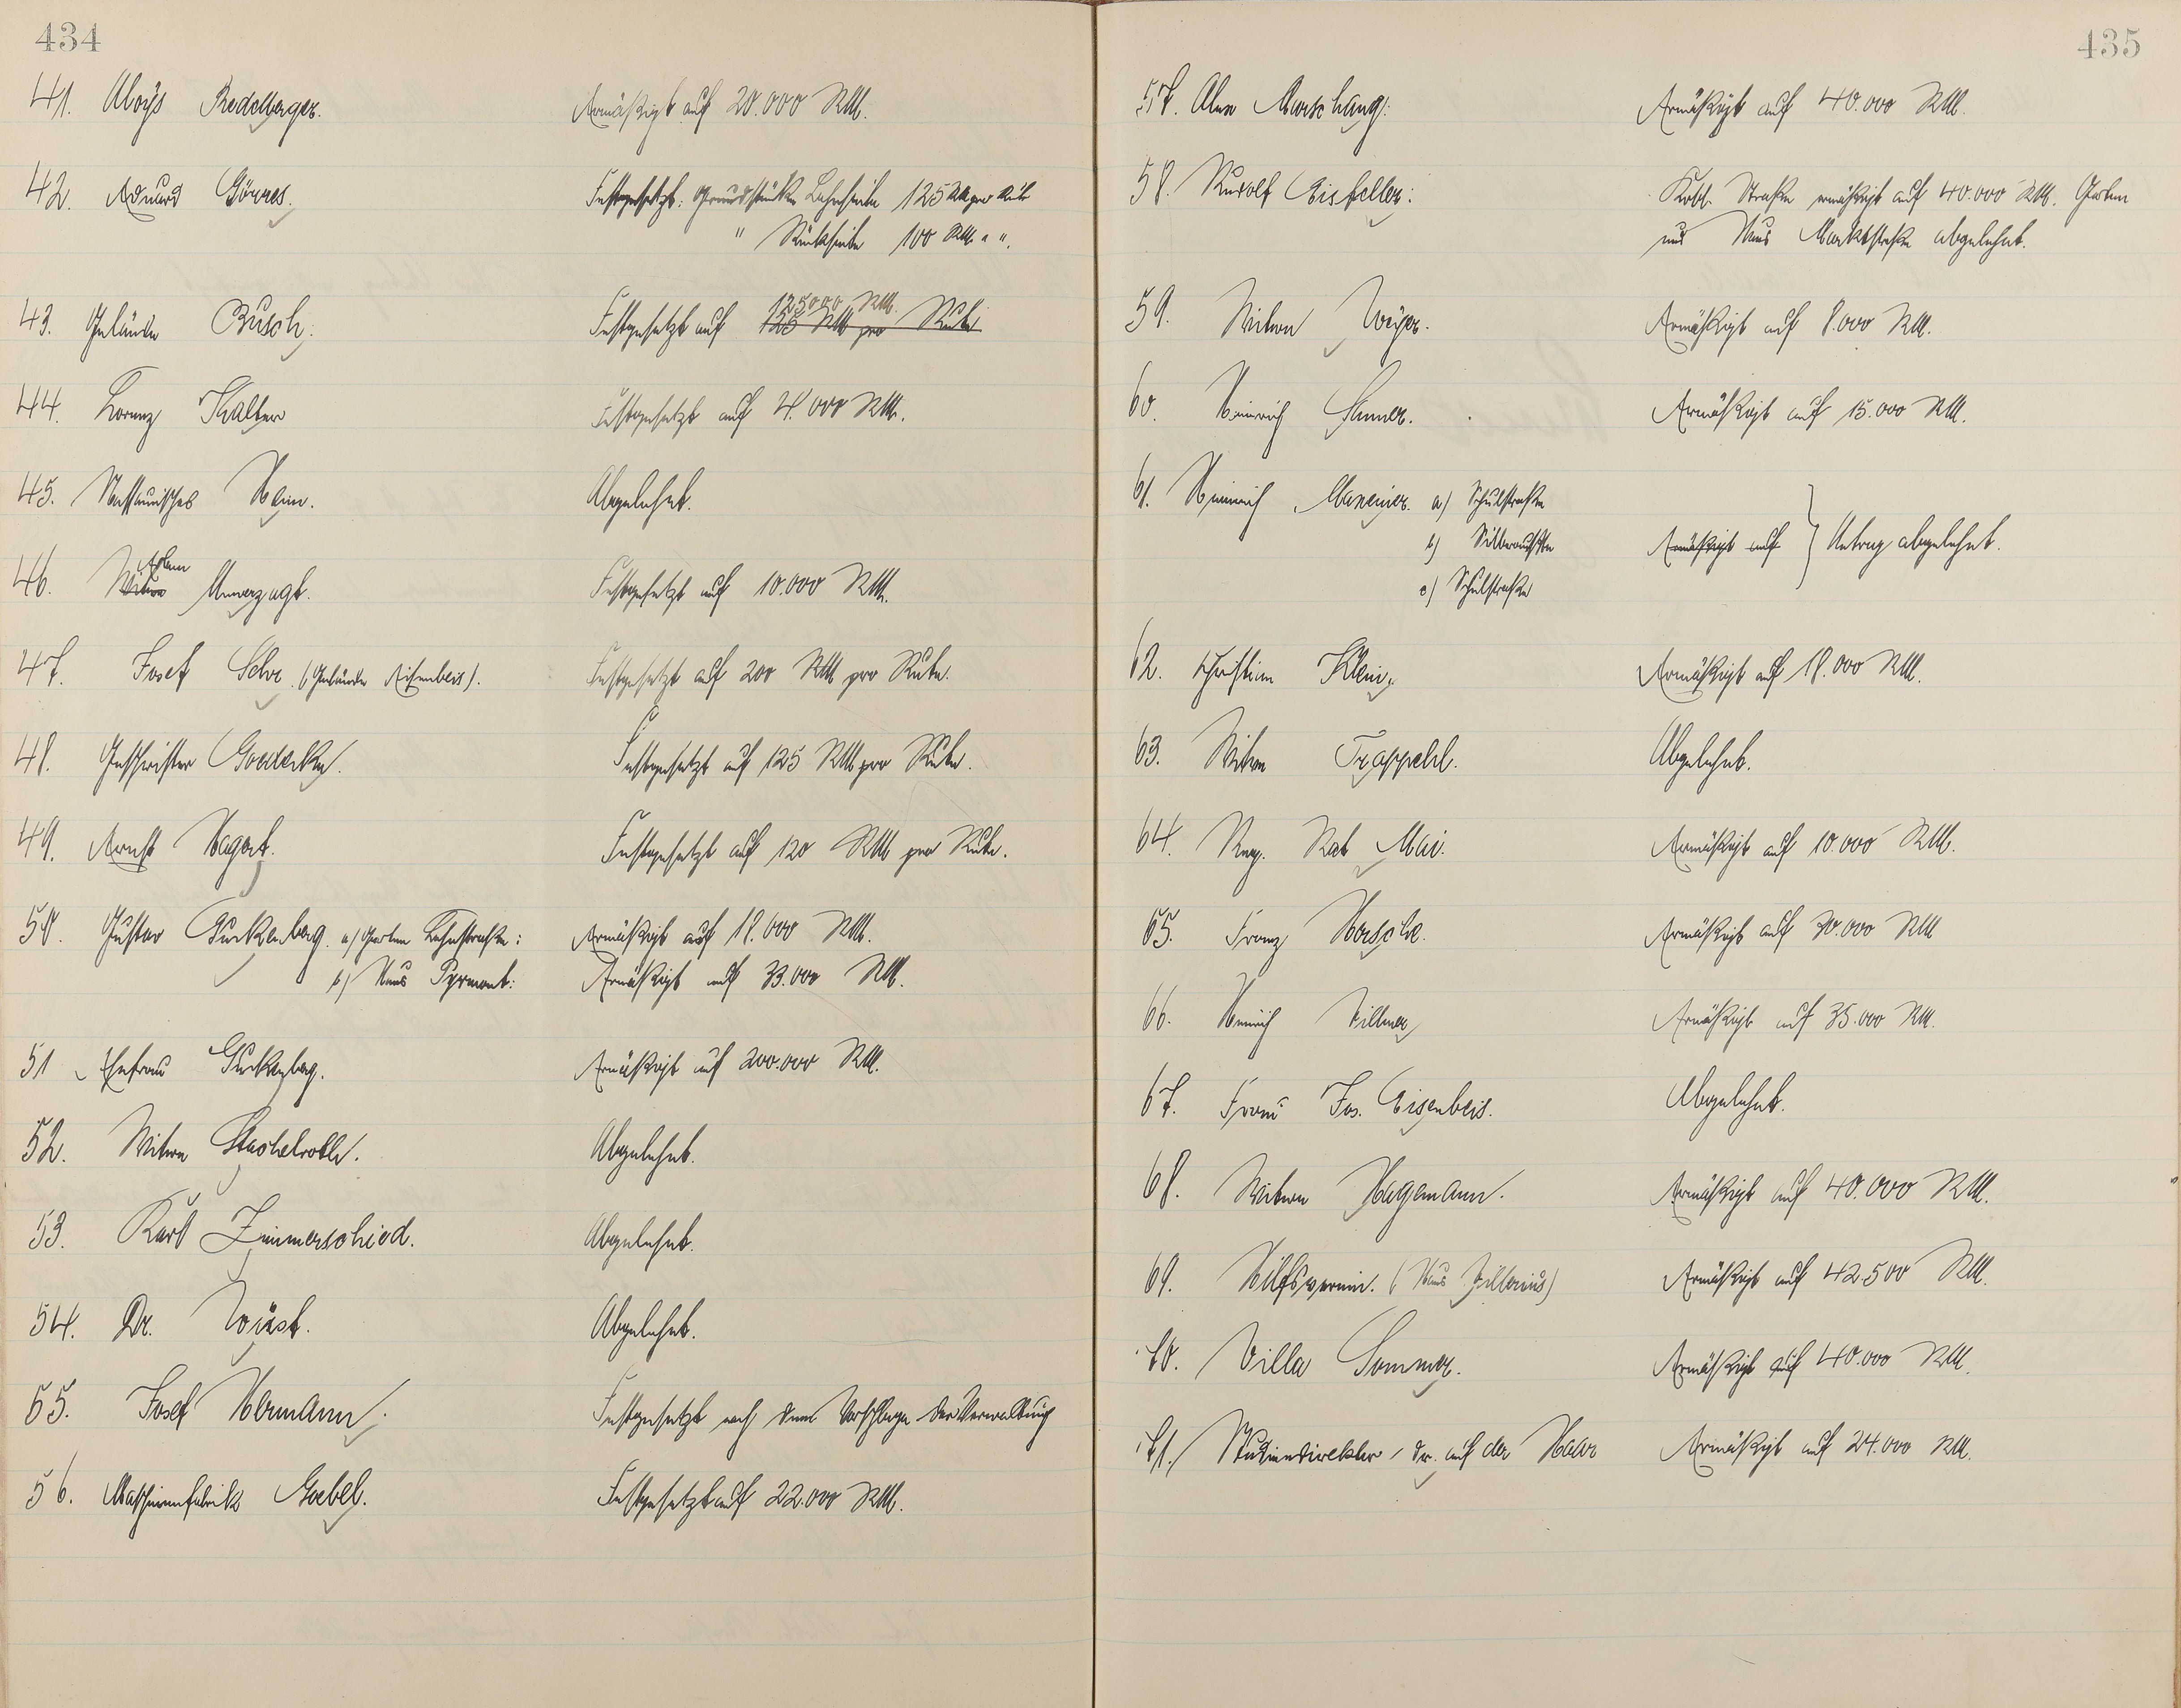 434
41. Aloys Bedelberger. Ermäßigt auf 20.000 RM.
42. Eduard Görres. Festgesetzt: Grundstücke Bahnseite 125 RM pro Rute
" Rückseite 100 RM " ".
43. Gelände Busch: Festgesetzt auf 125000 RM. 125 RM pro Rute
44. Lorenz Kalter Festgesetzt auf 4.000 RM.
45. Nassauisches Heim. Abgelehnt.
46. Witwe Adam Unverzagt. Festgesetzt auf 10.000 RM.
47. Josef Lehr. (Gelände Eisenbeis). Festgesetzt auf 200 RM pro Rute.
48. Geschwister Goedecke. Festgesetzt auf 125 RM pro Rute.
49. Ernst Hagert. Festgesetzt auf 120 RM pro Rute.
50. Gustav Guckenberg. a) Garten Lahnstraße: Ermäßigt auf 18.000 RM.
b) Haus Pyrmont: Ermäßigt auf 33.000 RM.
51 Ehefrau Guckenberg. Ermäßigt auf 200.000 RM.
52. Witwe Stachelroth. Abgelehnt.
53. Karl Zimmerschied. Abgelehnt.
54. Dr. Wüst. Abgelehnt.
55. Josef Hermann. Festgesetzt nach dem Vorschlage der Verwaltung
56. Maschinenfabrik Goebel. Festgesetzt auf 22.000 RM.
435
57. Alex Marschang: Ermäßigt auf 40.000 RM.
58. Rudolf Eisfeller: Kobl. Straße ermäßigt auf 40.000 RM. Garten
und Haus Marktstraße abgelehnt.
59. Witwe Weyer. Ermäßigt auf 8.000 RM.
60. Heinrich Sauer. Ermäßigt auf 15.000 RM.
61. Heinrich Maxeiner. a) Schulstraße
b) Silberau Ermäßigt auf } Antrag abgelehnt.
c) Schulstraße
62. Christian Klein. Ermäßigt auf 18.000 RM.
63. Witwe Trappehl. Abgelehnt.
64. Reg. Rat Mai. Ermäßigt auf 10.000 RM.
65. Franz Horsche. Ermäßigt auf 30.000 RM
66. Heinrich Fillmer Ermäßigt auf 35.000 RM.
67. Frau Jos. Eisenbeis. Abgelehnt.
68. Witwe Hagemann. Ermäßigt auf 40.000 RM.
69. Hilfsverein. (Haus Hillerius) Ermäßigt auf 42.500 RM.
70. Villa Sommer. Ermäßigt auf 40.000 RM.
71. Studiendirektor, Dr. auf der Haar Ermäßigt auf 24.000 RM.